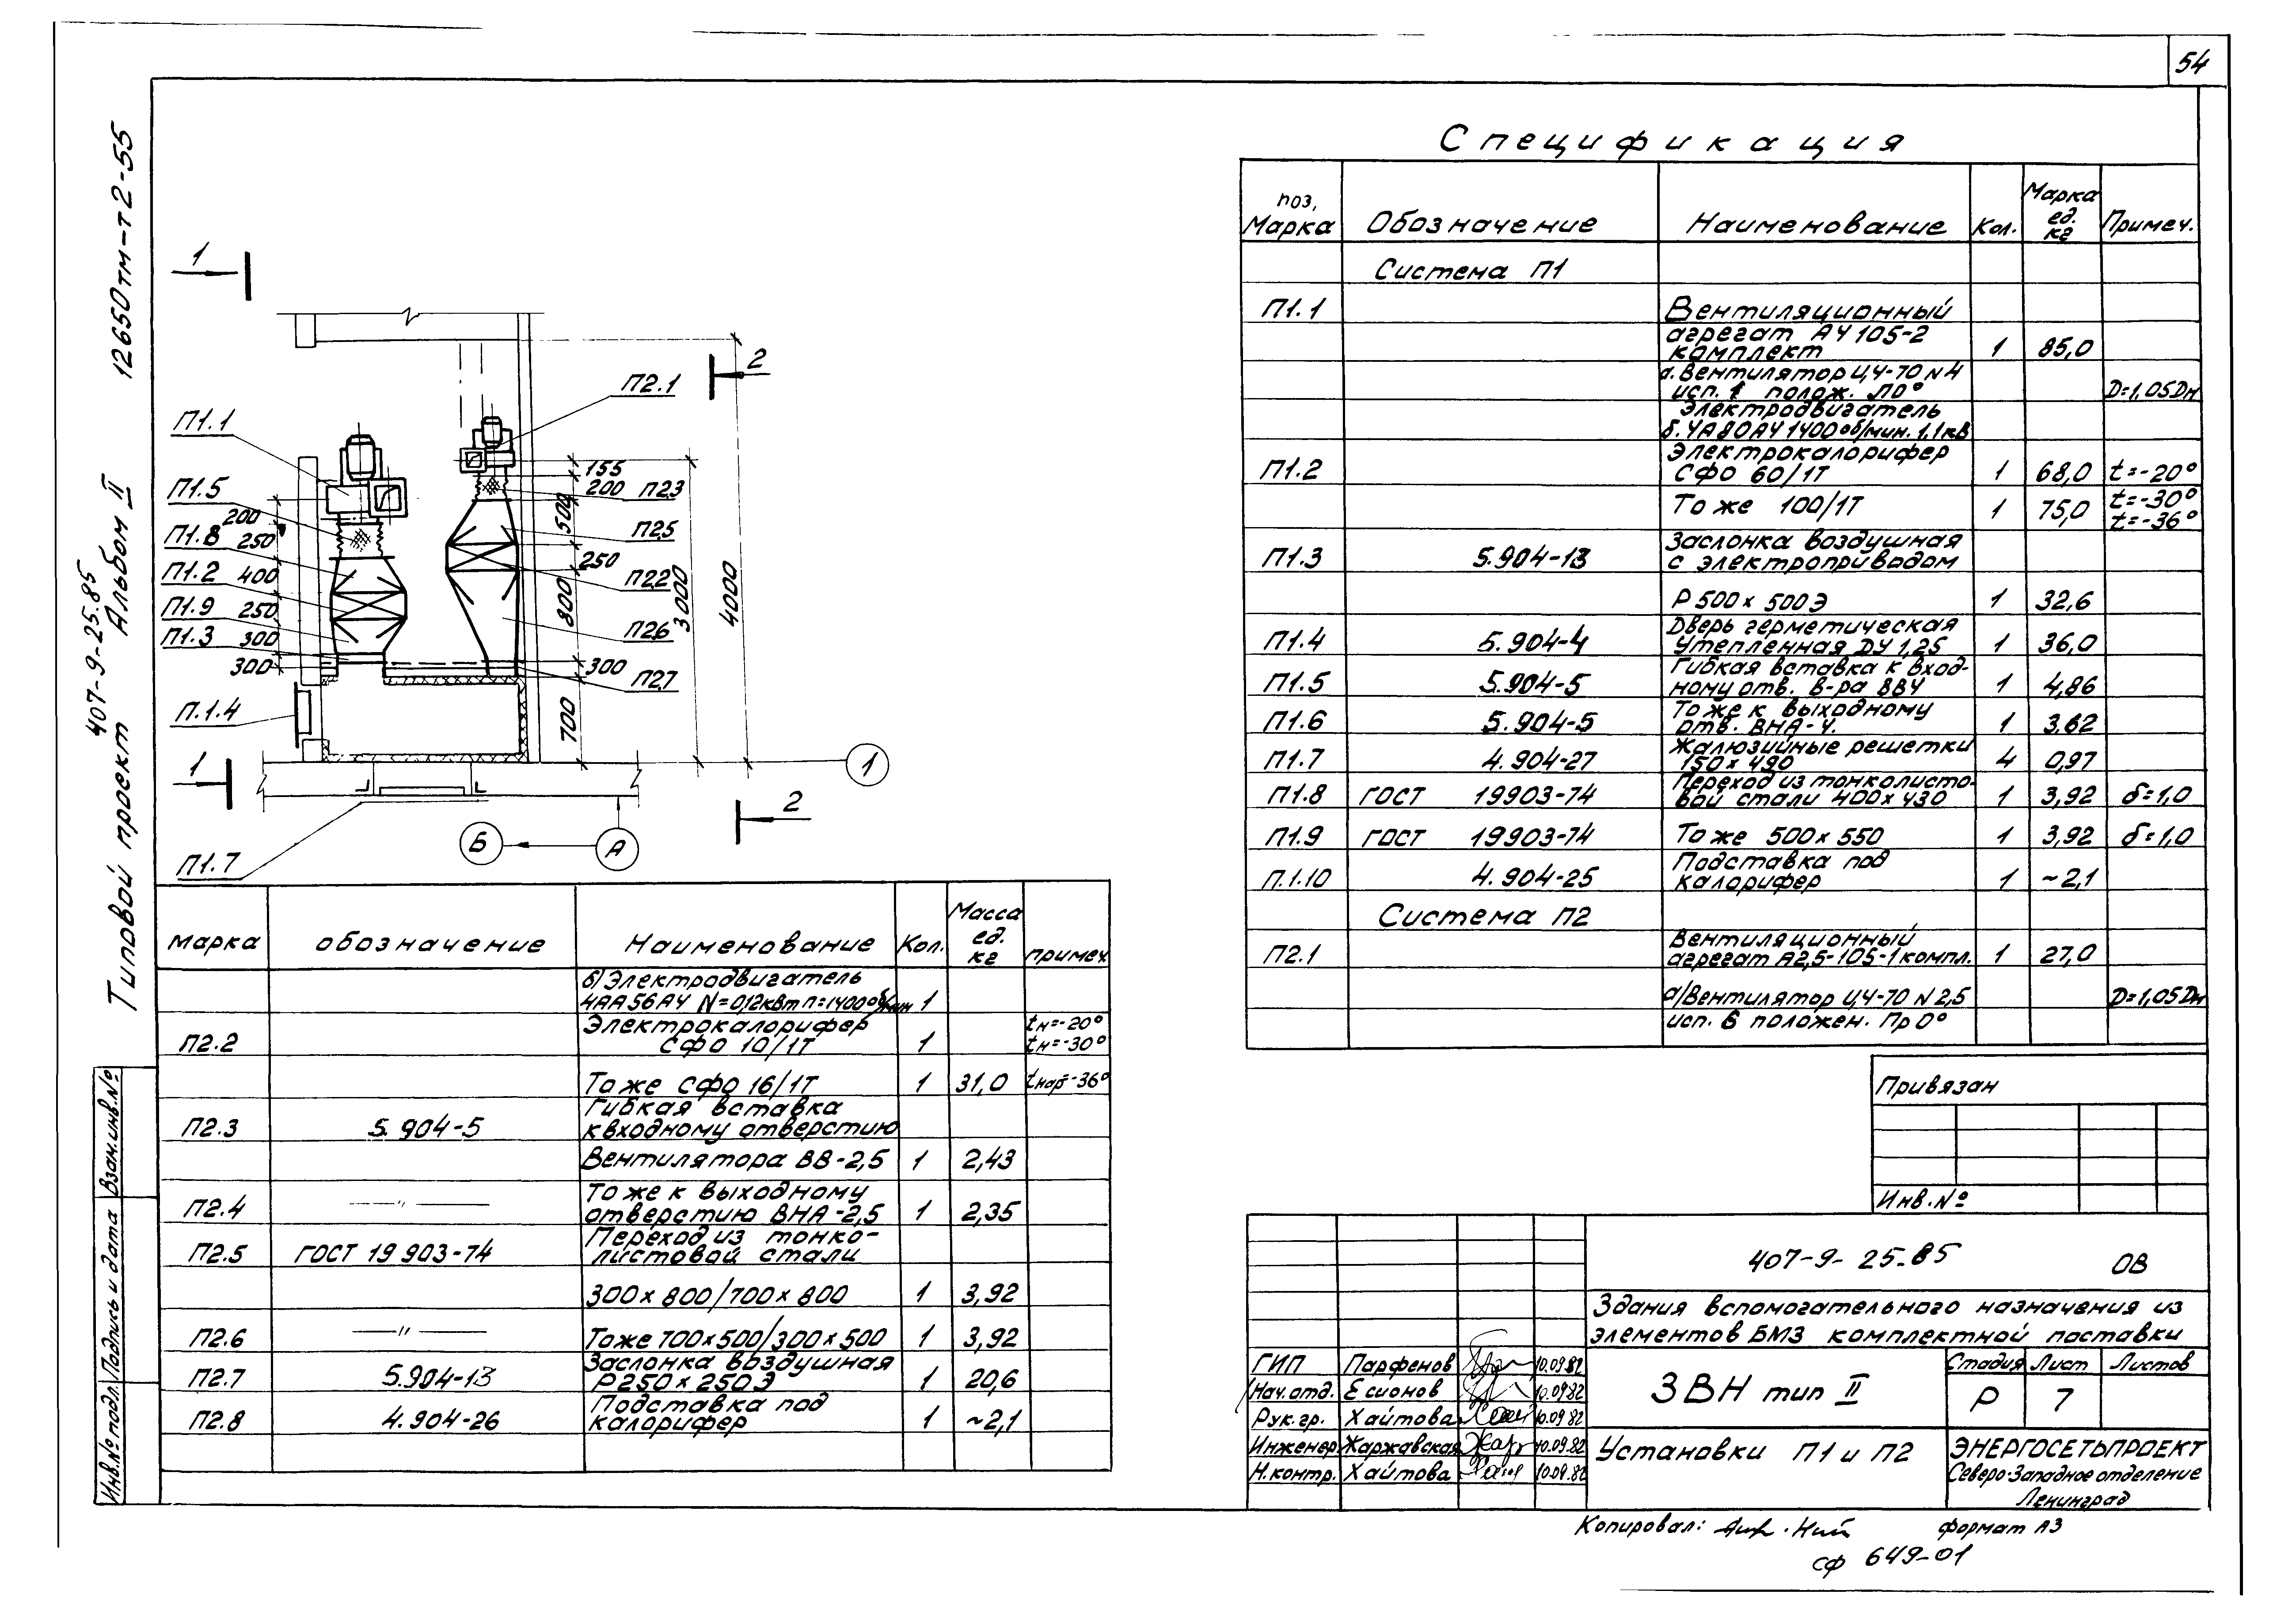 54
12650тм-т2-55
Альбом II
407-9-25.85
Типовой проект
Взам.инв.№
Подпись и дата
Инв.№ подл.
1
2
П2.1
П1.1
П1.5
200
П1.8
250
П1.2
400
П1.9
250
П1.3
300
300
П.1.4
1
П1.7
155
200
П2.3
500
П2.5
250
П2.2
800
П2.6
300
П2.7
700
3000
4000
1
2
Б
А
Спецификация
поз, Марка Обозначение Наименование Кол. Марка ед. кг Примеч.
Система П1
П1.1 Вентиляционный
агрегат АЧ 105-2
комплект 1 85,0
а. Вентилятор ЦЧ-70 N4
исп. 1 полож. Л0° D=1,05Dн
Электродвигатель
б. ЧА80АЧ 1400об/мин. 1,1кв
П1.2 Электрокалорифер
СФО 60/1Т 1 68,0 t=-20°
То же 100/1Т 1 75,0 t=-30°
t=-36°
П1.3 5.904-13 Заслонка воздушная
с электроприводом
Р 500х 500Э 1 32,6
П1.4 5.904-4 Дверь герметическая
утепленная ДУ 1,25 1 36,0
П1.5 5.904-5 Гибкая вставка к вход-
ному отв. в-ра ВВЧ 1 4,86
П1.6 5.904-5 То же к выходному
отв. ВНА-Ч. 1 3,62
П1.7 4.904-27 Жалюзийные решетки
150х490 4 0,97
П1.8 ГОСТ 19903-74 Переход из тонколисто-
вой стали 400х430 1 3,92 δ=1,0
П1.9 ГОСТ 19903-74 То же 500х550 1 3,92 δ=1,0
П.1.10 4.904-25 Подставка под
калорифер 1 ~2,1
Система П2
П2.1 Вентиляционный
агрегат А2,5-105-1компл. 1 27,0
а/Вентилятор ЦЧ-70 N2,5 D=1,05Dн
исп. 6 положен. Пр0°
Марка обозначение Наименование Кол. Масса ед. кг примеч.
б/Электродвигатель
4АА56АЧ N=0,12квт п=1400об/мин 1
П2.2 Электрокалорифер
СФО 10/1Т 1 tн=-20°
tн=-30°
То же СФО 16/1Т 1 31,0 tнар=-36°
П2.3 5.904-5 Гибкая вставка
к входному отверстию
Вентилятора ВВ-2,5 1 2,43
П2.4 —"— То же к выходному
отверстию ВНА-2,5 1 2,35
П2.5 ГОСТ 19903-74 Переход из тонко-
листовой стали
300х800/700х800 1 3,92
П2.6 —"— То же 700х500/300х500 1 3,92
П2.7 5.904-13 Заслонка воздушная
Р250х250Э 1 20,6
П2.8 4.904-26 Подставка под
калорифер 1 ~2,1
Привязан
Инв.№
407-9-25.85 ОВ
Здания вспомогательного назначения из
элементов БМЗ комплектной поставки
ГИП Парфенов 10.09.82
Нач.отд. Есионов 10.09.82
Рук.гр. Хаитова 10.09.82
Инженер Жаржавская 10.09.82
Н.контр. Хаитова 10.09.82
ЗВН тип II
Стадия Лист Листов
Р 7
Установки П1 и П2
ЭНЕРГОСЕТЬПРОЕКТ
Северо-Западное отделение
Ленинград
Копировал: формат А3
сф 649-01